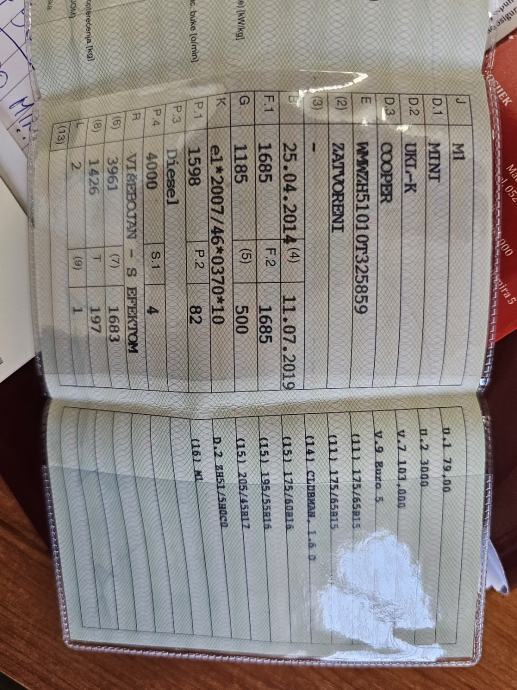 J M1
D.1 MINI
D.2 UKL-K
D.3 COOPER
E WMWZH51010T325859
(2) ZATVORENI
(3) -
B 25.04.2014 (4) 11.07.2019
F.1 1685 F.2 1685
G 1185 (5) 500
K e1*2007/46*0370*10
P.1 1598 P.2 82
P.3 Diesel
P.4 4000 S.1 4
R VIŠEBOJAN - S EFEKTOM
(6) 3961 (7) 1683
(8) 1426 T 197
L 2 (9) 1
(13)
U.1 79,00
U.2 3000
V.7 103,000
V.9 Euro 5
(11) 175/65R15
(11) 175/65R15
(14) CLUBMAN, 1.6 D
(15) 175/60R16
(15) 195/55R16
(15) 205/45R17
(16) M1